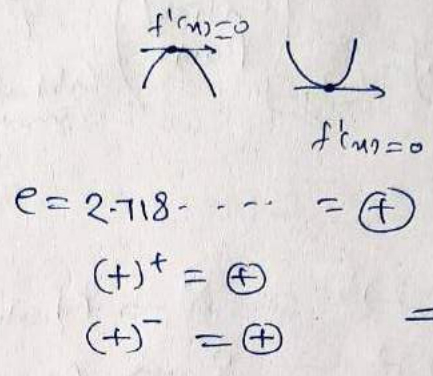 f'(x)=0
f'(x)=0
e = 2.718 - - - - - = ⊕
(+)⁺ = ⊕
(+)⁻ = ⊕
=